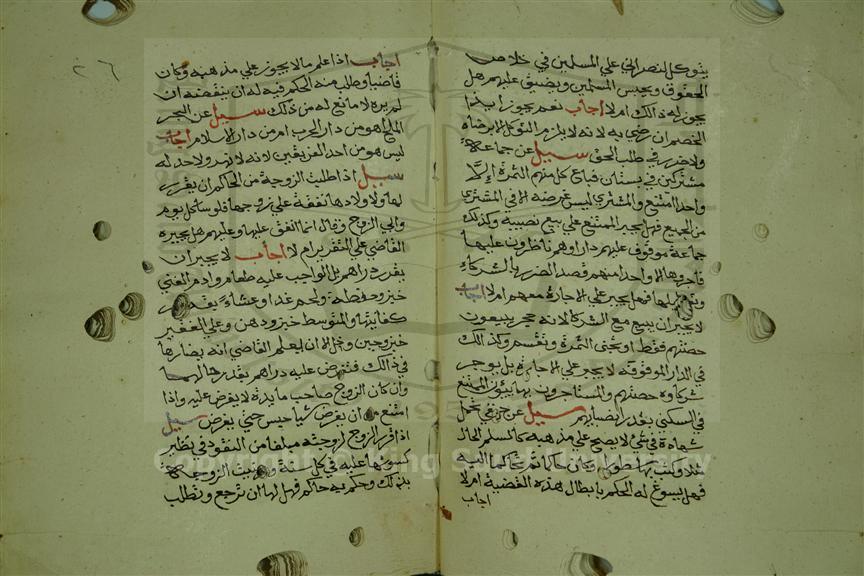 يتوكل لنصراني علي المسلمين في خلاص
الحقوق ويحبس المسلمين ويضيق عليهم هل
يجوز له ذالك ام لا اجاب نعم يجوز
الخصم ان رضي به لانه لا يلزم التوكل الا برضاه
ولا ضرر في طلب الحق سيل عن جماعة
مشتركين في بستان فباع كل منهم الثمرة إلا
واحدا امتنع والمشتري ليس غرضه الا في المشتري
من الجميع فهل يجبر الممتنع علي بيع نصيبه وكذلك
جماعة موقوف عليهم دار اوهم ناظرون عليها
فآجروها الا واحدا منهم قصد الضرر بالشركاء
فهل يجبر علي الاجارة معهم ام لا اجاب
لا يجبر ان يبيع مع الشركا لانه حجر يبيعون
حصتهم فقط او تجنى الثمرة وتقسم وكذالك
في الدار الموقوفة لا يجبر علي الاجارة بل يوجر
شركاوه حصتهم والمستاجرون يهايئون الممتنع
في السكني بقدر انصبائهم سيل عن
شهادة في شئ لا يصح علي مذهبه كالسلم الحال
مثلا وكتب بها
فهل يسوغ له الحكم بابطال هذه القضية ام لا
اجاب
٢٦
اجاب اذا علم ما لا يجوز علي مذهبه وكان
قاضيا وطلب منه الحكم فيه له ان ينقضه ان
لم يره لا مانع له من ذلك سيل عن البحر
المالح اهو من دار الحرب ام من دار الاسلام اجاب
ليس هو من احد الفريقين لانه لا قهر ولا حد له
سيل اذا طلبت الزوجة من الحاكم ان يقرر
لها ولاولادها نفقة علي زوجها فلوسا كل يوم
وابي الزوج وقال انما انفق عليها وعليهم هل يجبره
القاضي علي التقرير ام لا اجاب لا يجبر ان
يقرر دراهم بل الواجب عليه طعام وادم الغني
خبز وحنطة ولحم غداء وعشاء بقدر
كفايتها والمتوسط خبز ودهن وعلي الفقير
خبز وجبن وخل الا ان يعلم القاضي انه يضارها
في ذالك فتفرض عليه دراهم بقدر حالهما
وان كان الزوج صاحب مايدة لا يفرض عليه واذا
امتنع من ان يفرض شيا حبس حتي يفرض سيل
اذا قرر الزوج لزوجته مبلغا من النقود في نظير
كسوتها عليه في كل سنة ورضيت الزوجة
بذلك وحكم به حاكم فهل لها ان ترجع وتطلب
Copyright © King Saud University